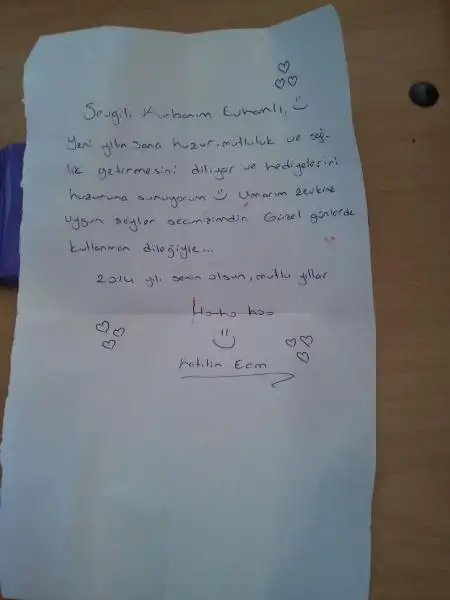 Sevgili Kurbanım Evhamlı,
Yeni yılın sana huzur, mutluluk ve sağ-
lık getirmesini diliyor ve hediyelerini
huzuruna sunuyorum Umarım zevkine
uygun şeyler seçmişimdir. Güzel günlerde
kullanman dileğiyle...
2014 yılı senin olsun, mutlu yıllar
Ho ho hoo
Katilin Ecm